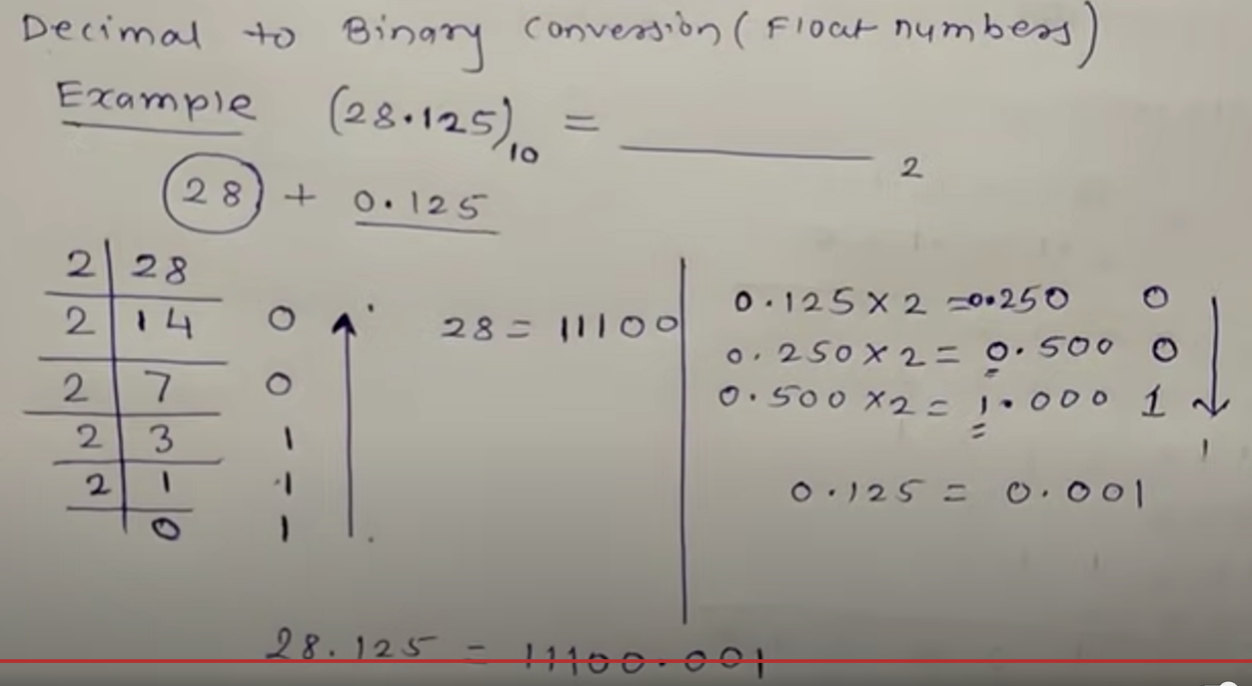 Decimal to Binary Conversion (Float numbers)
Example (28.125)10 = __________ 2
28 + 0.125
2 28
2 14 0
2 7 0
2 3 1
2 1 1
0 1
28 = 11100
0.125 x 2 = 0.250 0
0.250 x 2 = 0.500 0
0.500 x 2 = 1.000 1
0.125 = 0.001
28.125 = 11100.001